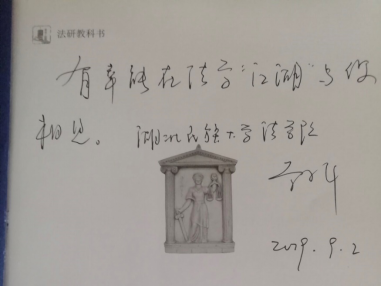 法研教科书
有幸能在法学“江湖”与你
相见。湖北民族大学法学院
2019.9.2